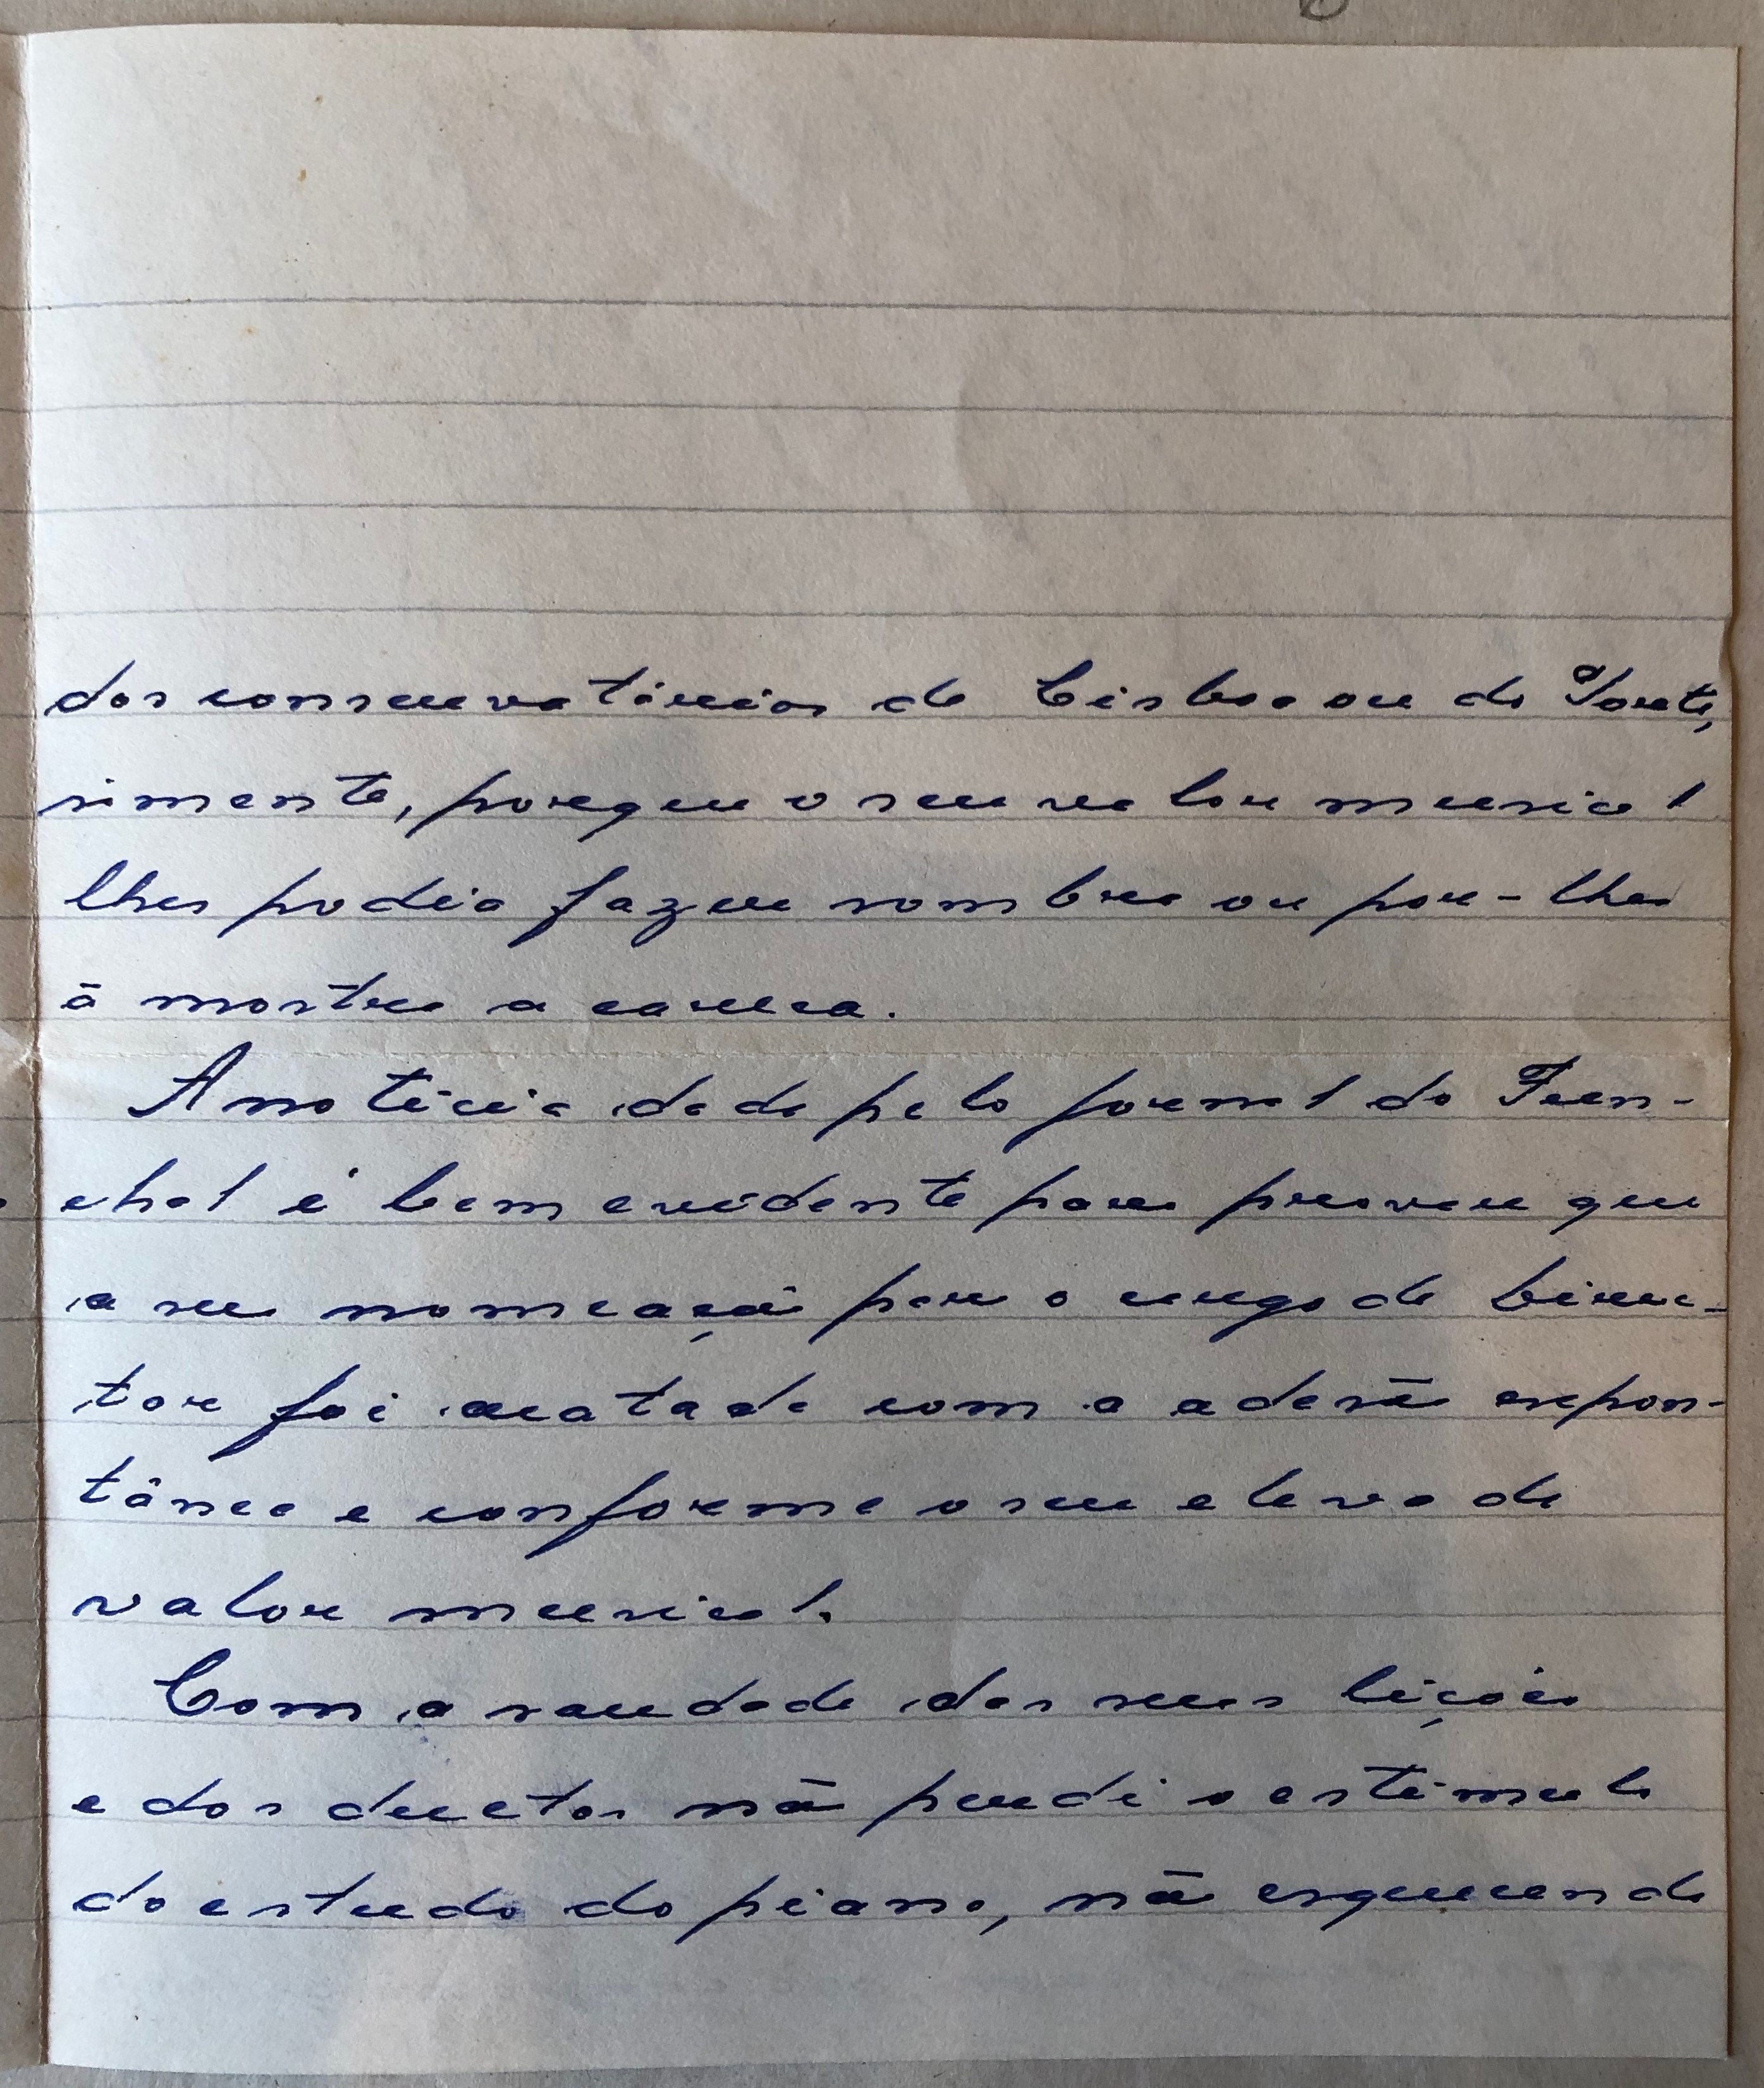 dos conservatórios de Lisboa ou do Porto,
simente, porque o seu valor musical
lhes podia fazer sombra ou por-lhes
à mostra a careca.
A notícia dada pelo jornal do Fun-
chal é bem evidente para provar que
a sua nomeação para o cargo de Direc-
tor foi acatada com a adesão espon-
tânea e conforme o seu elevado
valor musical.
Com a saudade das suas lições
e dos duetos não perdi o estímulo
do estudo do piano, não esquecendo